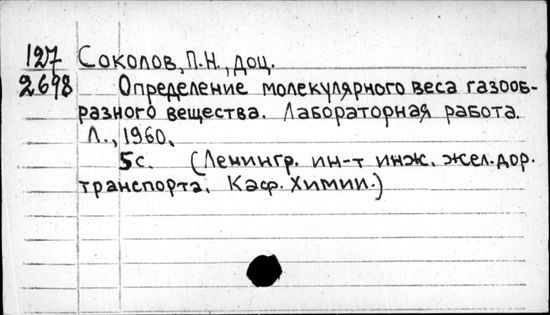 127 Соколов, П.Н., доц.
2698 Определение молекулярного веса газооб-
разного вещества. Лабораторная работа.
Л., 1960.
5с. (Ленингр. ин-т инж. жел.дор.
транспорта. Каф. Химии.)